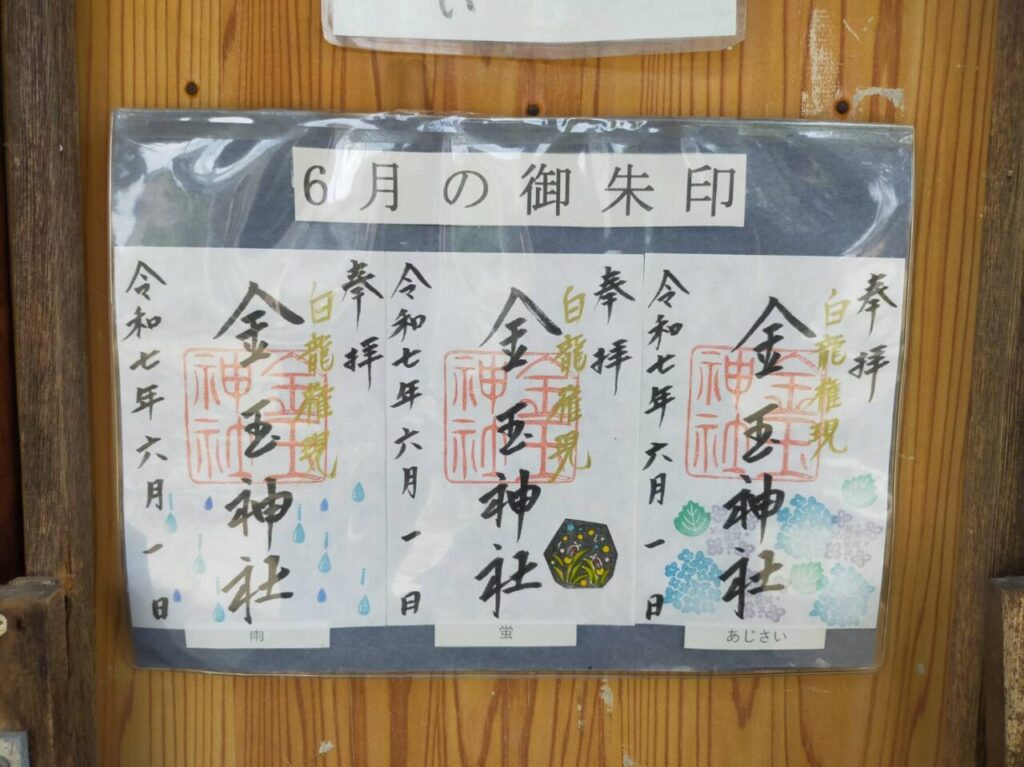 い
6月の御朱印
奉拝
白龍権現
金玉神社
金玉神社
令和七年六月一日
あじさい
奉拝
白龍権現
金玉神社
金玉神社
令和七年六月一日
蛍
奉拝
白龍権現
金玉神社
金玉神社
令和七年六月一日
雨